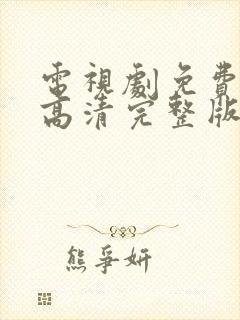 電視劇免費
高清完整版
熊爭妍